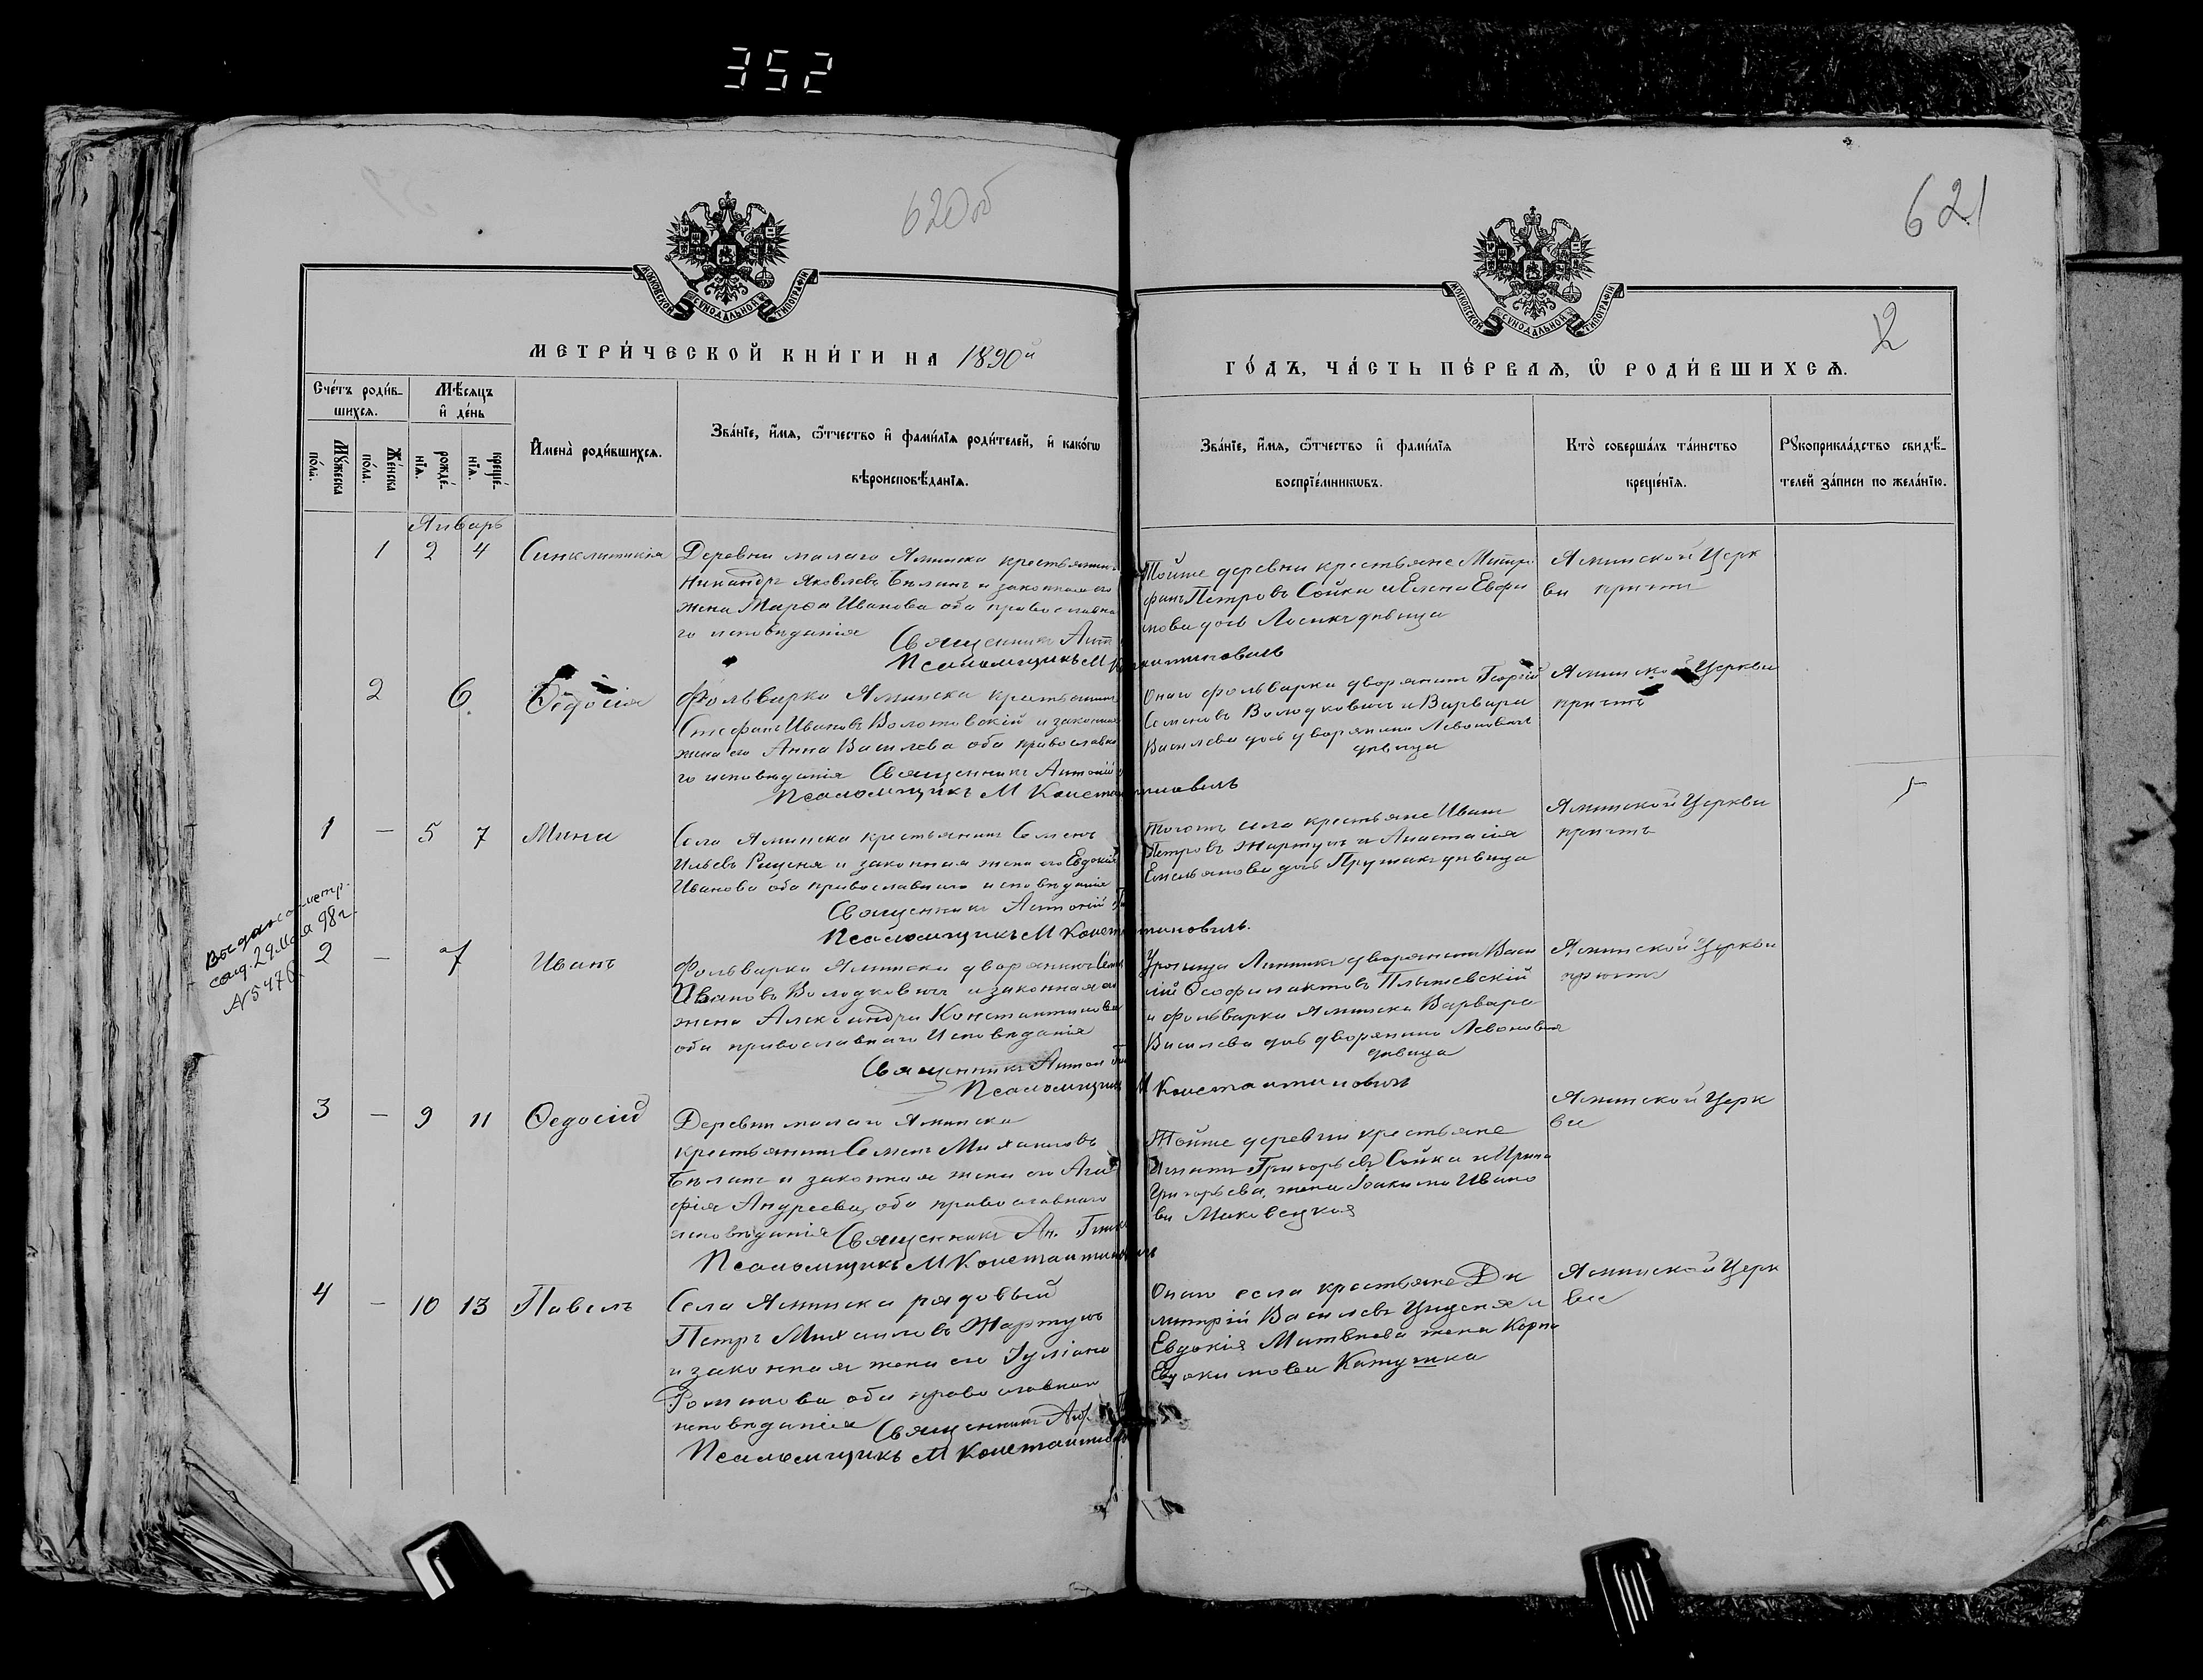 352
620об
621
2
МОСКОВСКОЙ СѴНОДАЛЬНОЙ ТИПОГРАФІИ
МОСКОВСКОЙ СѴНОДАЛЬНОЙ ТИПОГРАФІИ
МЕТРИ́ЧЕСКОЙ КНИ́ГИ НА 1890й
ГО́ДЪ, ЧА́СТЬ ПЕ́РВАѦ, Ѿ РОДИ́ВШИХСѦ.
Сче́тъ роди́в-
шихсѧ.
Мꙋ́жеска по́ла.
Же́нска по́ла.
Мѣ́сѧцъ
и҆ де́нь
рожде́-нїѧ.
креще́-нїѧ.
И҆мена̀ роди́вшихсѧ.
Зва́нїе, и҆́мѧ, ѻ҆́тчество и҆ фами́лїѧ роди́телей, и҆ како́гѡ
вѣроисповѣ́данїѧ.
Зва́нїе, и҆́мѧ, ѻ҆́тчество и҆ фами́лїѧ
воспрїе́мникѡвъ.
Кто̀ соверша́лъ та́инство
креще́нїѧ.
Рꙋкоприкла́дство свидѣ́-
телей за́писи по жела́нїю.
Январь
1 2 4 Синклитикія
Деревни малаго Яминска крестьянинъ
Никандръ Яковлевъ Бъланъ и законная его
жена Марѳа Иванова оба православна
го исповѣданія
Священникъ Ант
Псаломщикъ М
Тойже деревни крестьяне Митро
фанъ Петровъ Сойка и Елена Евфи
мова дочь Лосикъ дѣвица
Яминской Церк
ви причтъ
2 6 Ѳедосія
Фольварка Яминска крестьянинъ
Стефанъ Ивановъ Волотовскій и законная
жена его Анна Василева оба православна
го исповѣданія Священникъ Антоній
Псаломщикъ М Константиновичъ
Онаго фольварка дворянинъ Георгій
Семеновъ Володковичъ и Варвара
Василева дочь дворянина Левоновича
дѣвица
Яминской Церкви
причтъ
1 — 5 7 Мина
Села Яминска крестьянинъ Семенъ
Ильевъ и законная жена его Евдокія
Иванова оба православнаго исповѣданія
Священникъ Антоній
Псаломщикъ М Константиновичъ.
Тогожъ села крестьяне Иванъ
Петровъ Жартунъ и Анастасія
Емельянова дочь Пружакъ дѣвица
Яминской Церкви
причтъ
Выдано метр.
свид. 29 Мая 98 г.
№ 5476
2 — 7 Иванъ
Фольварка Яминска дворянинъ
Ивановъ Володковичъ и законная его
жена Александра Константинова
оба православнаго Исповѣданія
Священникъ Антон
Псаломщикъ М Константиновичъ
Урочища дворянинъ Васи
лій Ѳеофилактовъ
и фольварка Яминска Варвара
Василева дочь дворянина Левоновича
дѣвица
Яминской Церкви
причтъ
3 — 9 11 Ѳедосій
Деревни малаго Яминска
крестьянинъ Семенъ Михаиловъ
Бъланъ и законная жена его Ага
фія Андреева, оба православнаго
исповѣданія Священникъ Ан.
Псаломщикъ М Константиновичъ
Тойже деревни крестьяне
Игнатъ Григорьевъ Сойка и Ирина
Григорьева, жена Іоакима Ивано
ва Маковецкая
Яминской Церк
ви
4 — 10 13 Павелъ
Села Яминска рядовый
Петръ Михаиловъ Жартунъ
и законная жена его Іуліана
Романова оба православнаго
исповѣданія Священникъ Ант.
Псаломщикъ М Константинович
Онаго села крестьяне Ди
митрій Василевъ и
Евдокія Матвѣева жена Карпа
Евдокимова Катушка
Яминской Церк
ви